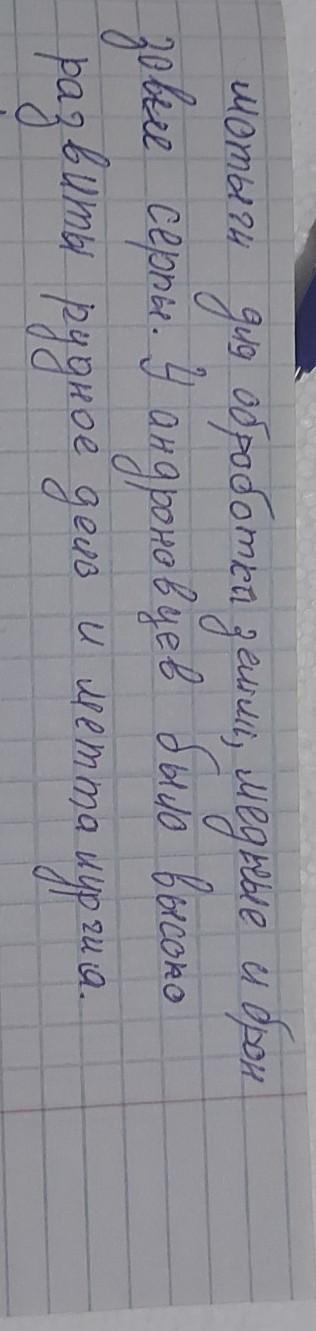 мотыги для оброботки земли, медные и брон
зовые серпы. У андроновцев было высоко
развиты рудное дело и метталургиа.